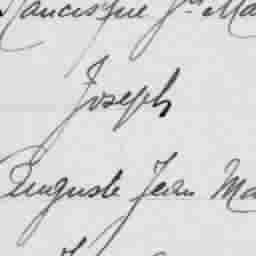 Francisque Jh Ma
Joseph
Auguste Jean Ma